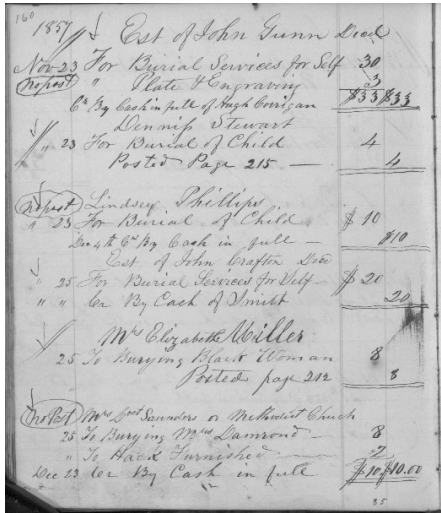 160
1857 Est of John Gunn Decd
Nov 23 For Burial Services for Self 30
No post " Plate & Engraving 3
Cr By Cash in full of Hugh Corrigan $33 $33
Dennis Stewart
" 23 For Burial of Child 4
Posted Page 215 — 4
No post Lindsey Phillips
" 23 For Burial of Child $10
Dec 4th Cr By Cash in full — $10
Est of John Crafton Decd
" 25 For Burial Services for Self $20
" " Cr By Cash of Smith 20
Mrs Elizabeth Miller
25 To Burying Black Woman 8
Posted page 212 8
No Post Mrs Saunders or Methodist Chuch
25 To Burying Mrs Damrond — 8
" To Hack Furnished — 2
Dec 23 Cr By Cash in full $10 $10.00